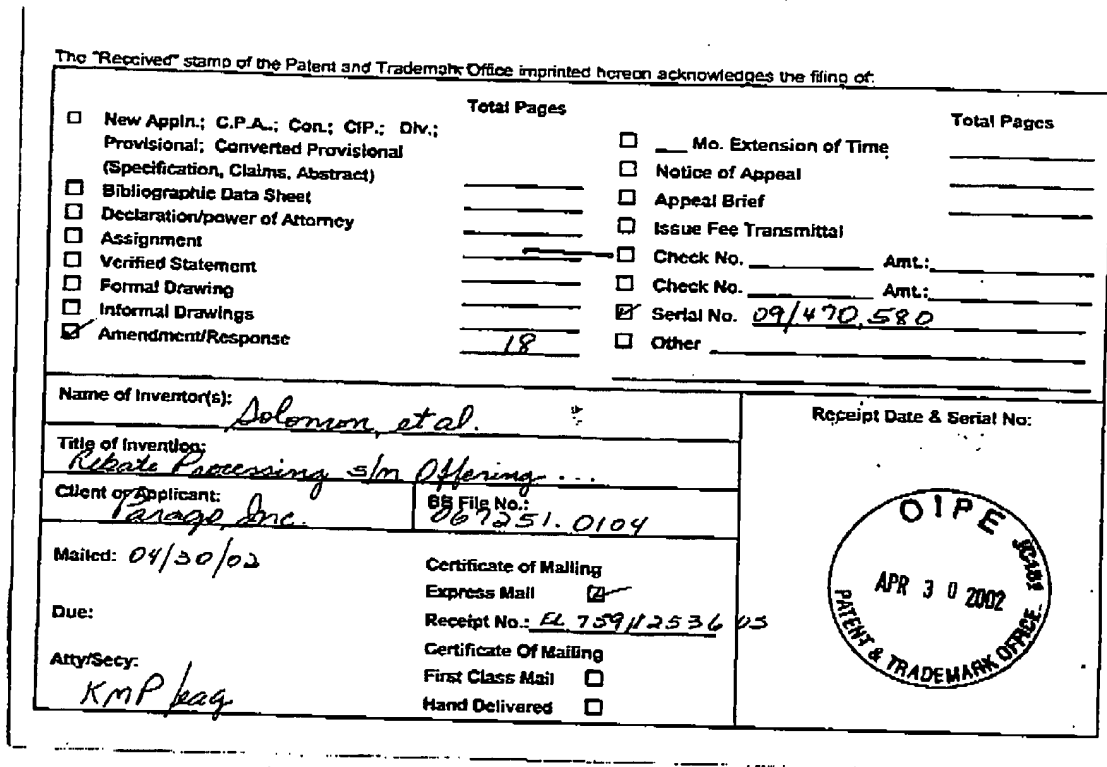 The "Received" stamp of the Patent and Trademark Office imprinted hereon acknowledges the filing of:
Total Pages
New Appln.; C.P.A.; Con.; CIP.; Div.;
Provisional; Converted Provisional
(Specification, Claims, Abstract)
Bibliographic Data Sheet
Declaration/power of Attorney
Assignment
Verified Statement
Formal Drawing
Informal Drawings
Amendment/Response 18
Total Pages
___ Mo. Extension of Time
Notice of Appeal
Appeal Brief
Issue Fee Transmittal
Check No. ________ Amt.:
Check No. ________ Amt.:
Serial No. 09/470,580
Other
Name of Inventor(s):
Solomon, et al.
Title of Invention:
Rebate Processing s/m Offering ...
Client or Applicant:
Parago, Inc.
BB File No.:
067251.0104
Mailed: 04/30/02
Due:
Atty/Secy:
KMP/eag
Certificate of Mailing
Express Mail
Receipt No.: EL 759112536 US
Certificate Of Mailing
First Class Mail
Hand Delivered
Receipt Date & Serial No:
OIPE
APR 30 2002
PATENT & TRADEMARK OFFICE